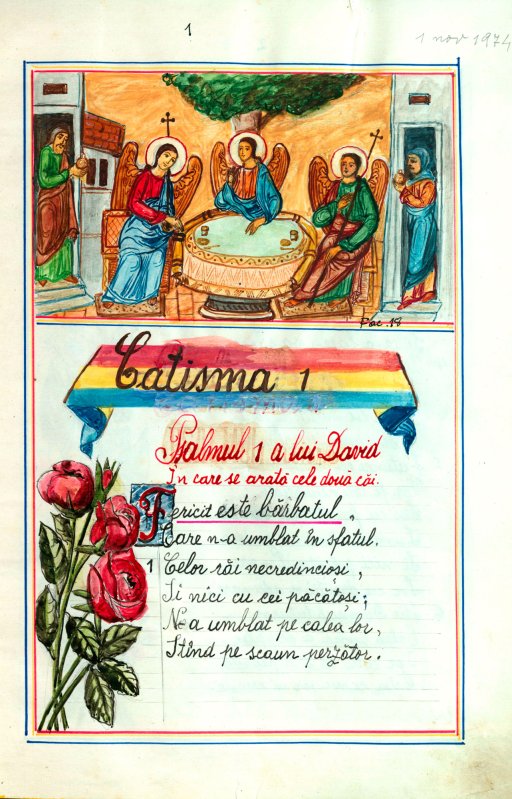 1
1 nov 1974
Fac. 18
Catisma 1
Psalmul 1 a lui David
În care se arată cele două căi.
Fericit este bărbatul,
Care n-a umblat în sfatul.
1 Celor răi necredincioși,
Și nici cu cei păcătoși;
N-a umblat pe calea lor,
Stînd pe scaun perzător.